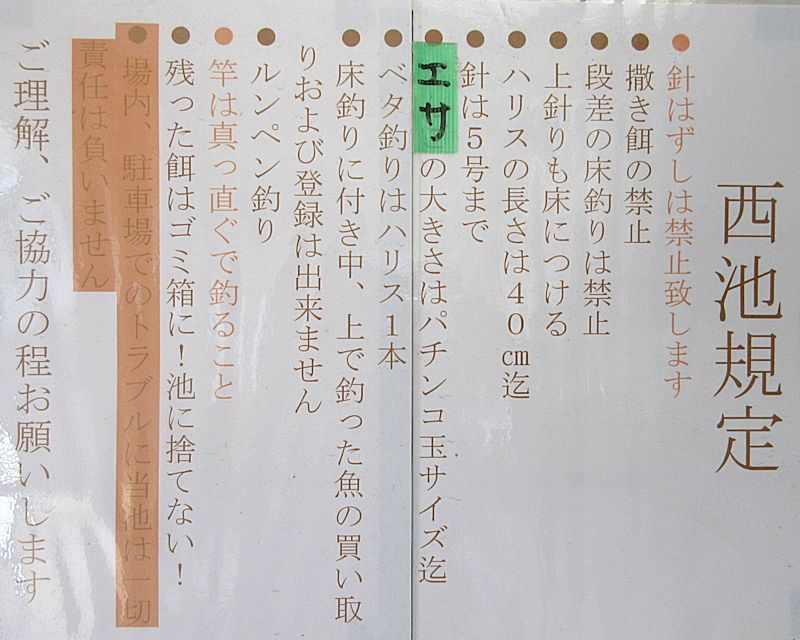 西池規定
●針はずしは禁止致します
●撒き餌の禁止
●段差の床釣りは禁止
●上針りも床につける
●ハリスの長さは40㎝迄
●針は5号まで
●エサの大きさはパチンコ玉サイズ迄
●ベタ釣りはハリス1本
●床釣りに付き中、上で釣った魚の買い取
りおよび登録は出来ません
●ルンペン釣り
●竿は真っ直ぐで釣ること
●残った餌はゴミ箱に！池に捨てない！
●場内、駐車場でのトラブルに当池は一切
責任は負いません
ご理解、ご協力の程お願いします